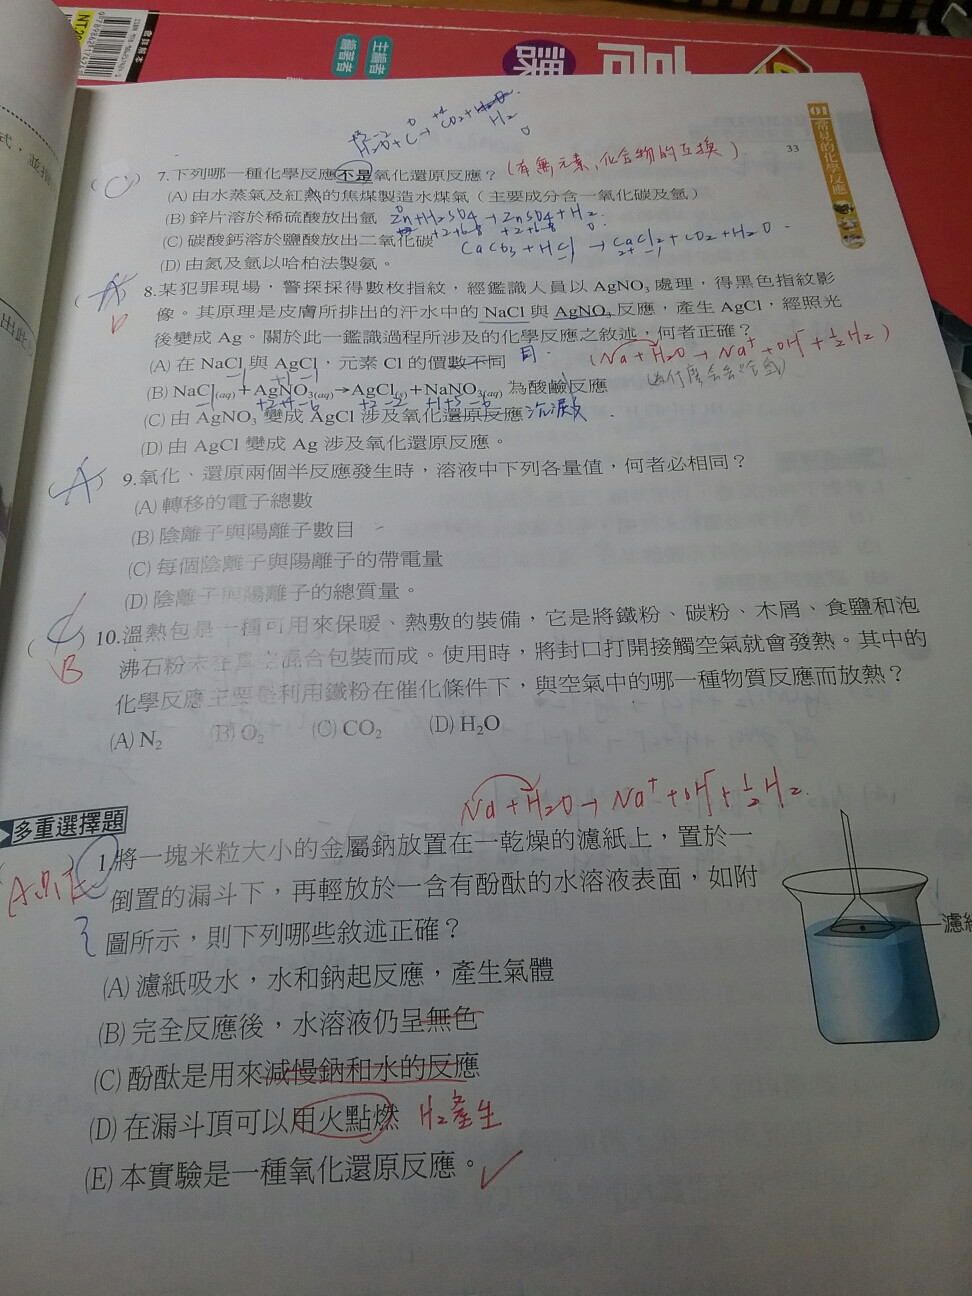 主編者
編著者
NT.2
33
01 常見的化學反應
+4
CO2+H2O
H2
(C)
7.下列哪一種化學反應不是氧化還原反應？(有無元素、化合物的互換)
(A) 由水蒸氣及紅熱的焦煤製造水煤氣（主要成分含一氧化碳及氫）
(B) 鋅片溶於稀硫酸放出氫 Zn+H2SO4→ZnSO4+H2
(C) 碳酸鈣溶於鹽酸放出二氧化碳 CaCO3+HCl→CaCl2+CO2+H2O
(D) 由氮及氫以哈柏法製氨。
(A)
D
8.某犯罪現場，警探採得數枚指紋，經鑑識人員以 AgNO3 處理，得黑色指紋影
像。其原理是皮膚所排出的汗水中的 NaCl 與 AgNO3 反應，產生 AgCl，經照光
後變成 Ag。關於此一鑑識過程所涉及的化學反應之敘述，何者正確？
(A) 在 NaCl 與 AgCl，元素 Cl 的價數不同 同
(Na+H2O→Na⁺+OH⁻+½H2)
(B) NaCl(aq)+AgNO3(aq)→AgCl(s)+NaNO3(aq) 為酸鹼反應
(C) 由 AgNO3 變成 AgCl 涉及氧化還原反應 沉澱
(D) 由 AgCl 變成 Ag 涉及氧化還原反應。
(A)
9.氧化、還原兩個半反應發生時，溶液中下列各量值，何者必相同？
(A) 轉移的電子總數
(B) 陰離子與陽離子數目
(C) 每個陰離子與陽離子的帶電量
(D) 陰離子與陽離子的總質量。
B
10.溫熱包是一種可用來保暖、熱敷的裝備，它是將鐵粉、碳粉、木屑、食鹽和泡
沸石粉末在真空混合包裝而成。使用時，將封口打開接觸空氣就會發熱。其中的
化學反應主要是利用鐵粉在催化條件下，與空氣中的哪一種物質反應而放熱？
(A) N2 (B) O2 (C) CO2 (D) H2O
Na+H2O→Na⁺+OH⁻+½H2
多重選擇題
1.將一塊米粒大小的金屬鈉放置在一乾燥的濾紙上，置於一
倒置的漏斗下，再輕放於一含有酚酞的水溶液表面，如附
圖所示，則下列哪些敘述正確？
濾紙
(A) 濾紙吸水，水和鈉起反應，產生氣體
(B) 完全反應後，水溶液仍呈無色
(C) 酚酞是用來減慢鈉和水的反應
(D) 在漏斗頂可以用火點燃 H2產生
(E) 本實驗是一種氧化還原反應。